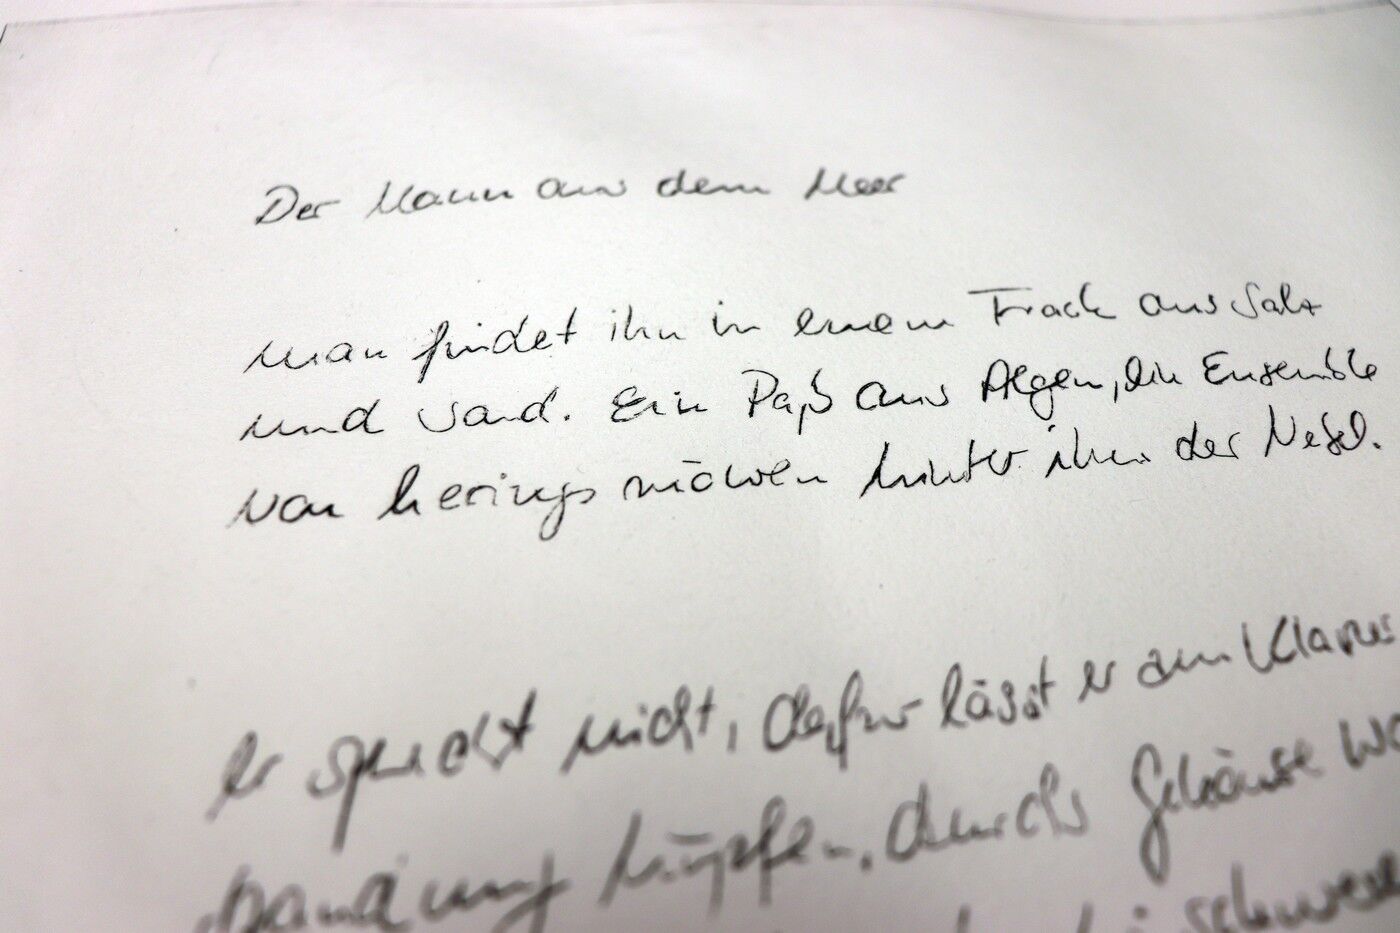 Der Mann aus dem Meer
man findet ihn in einem Frack aus Salz
und Sand. Ein Paß aus Algen, ein Ensemble
von herings möwen hinter ihm der Nebel.
er spricht nicht, dafür lässt er am Klavier
brandung hüpfen, durch Gehäuse
schwere